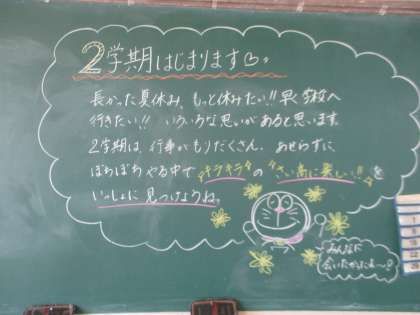 2学期はじまります♡。
長かった夏休み、もっと休みたい!!早く学校へ
行きたい!!いろいろな思いがあると思います。
2学期は、行事がもりだくさん。あせらずに
ぼちぼちやる中で"キラキラ"の"さい高に楽しい!!"を
いっしょに見つけようね。
みんなに
会いたかったよ〜?